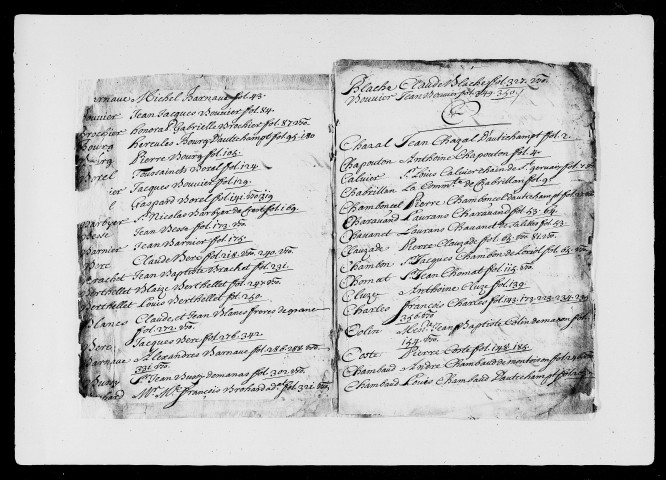 arnave Michel Barnave fol. 43.
ouvier Jean Jacques Bouvier fol. 84.
rochier honoré Gabrielle Brochier fol. 87. vo.
Bourg hercules Bourg Dautichampt fol. 95. 180
urg Pierre Bourg fol. 105.
Borel Toussainct Borel fol. 124.
ier Jacques Bouvier fol. 129.
l Gaspard Borel fol. 191. vo. 319
Barbyer Sr. Nicolas Barbyer de Crest fol. 169.
Besse Jean Besse fol. 173. vo.
Barnier Jean Barnier fol. 175.
Berc Claude Berc fol. 218. vo. 240. vo.
erachet Jean Baptiste Brachet fol. 231.
Berthellet Blaize Berthellet fol. 247. vo.
erthellet Louis Berthellet fol. 250.
Blancs Claude, et Jean Blancs freres de grane
fol. 272. vo.
Berc Jacques Berc fol. 276. 342
Barnave Sr. Alexandres Barnave fol. 286. 288. vo.
331. vo.
Sr. Jean fol. 302. vo.
hard Me. François Brohard fol. 321. vo.
Blache Claude Blache fol. 327. vo.
Bouvier Jean Bouvier fol. 349. 350.
Chazal Jean Chazal Dautichampt fol. 2.
Chapouton Anthoine Chapouton fol. 4.
Caluier Sr. Louis Caluier chain de St. gervais fol. 7
Chabrillan La Commté. de Chabrillan fol. 9.
Chamboncel Pierre Chamboncel Dautichampt fol.
Charavand Laurans Charavand fol. 53. 64.
Chavanet Laurans Chavanet de Salettes fol. 53.
Clauzade Pierre Clauzade fol. 65. vo. 81. vo.
Chambon Sr. Jacques Chambon de Loriol fol. 65. vo.
Chomat Sr. Jean Chomat fol. 115. vo.
Cluze Anthoine Cluze fol. 139.
Charles François Charles fol. 143. 172. 223. 234.
356. vo.
Colin Jean Baptiste Colin de manas fol.
154. vo.
Coste Pierre Coste fol. 148. 185.
Chambaud Andre Chambaud de montoison fol.
Chambaud Louis Chambaud Dautichampt fol.